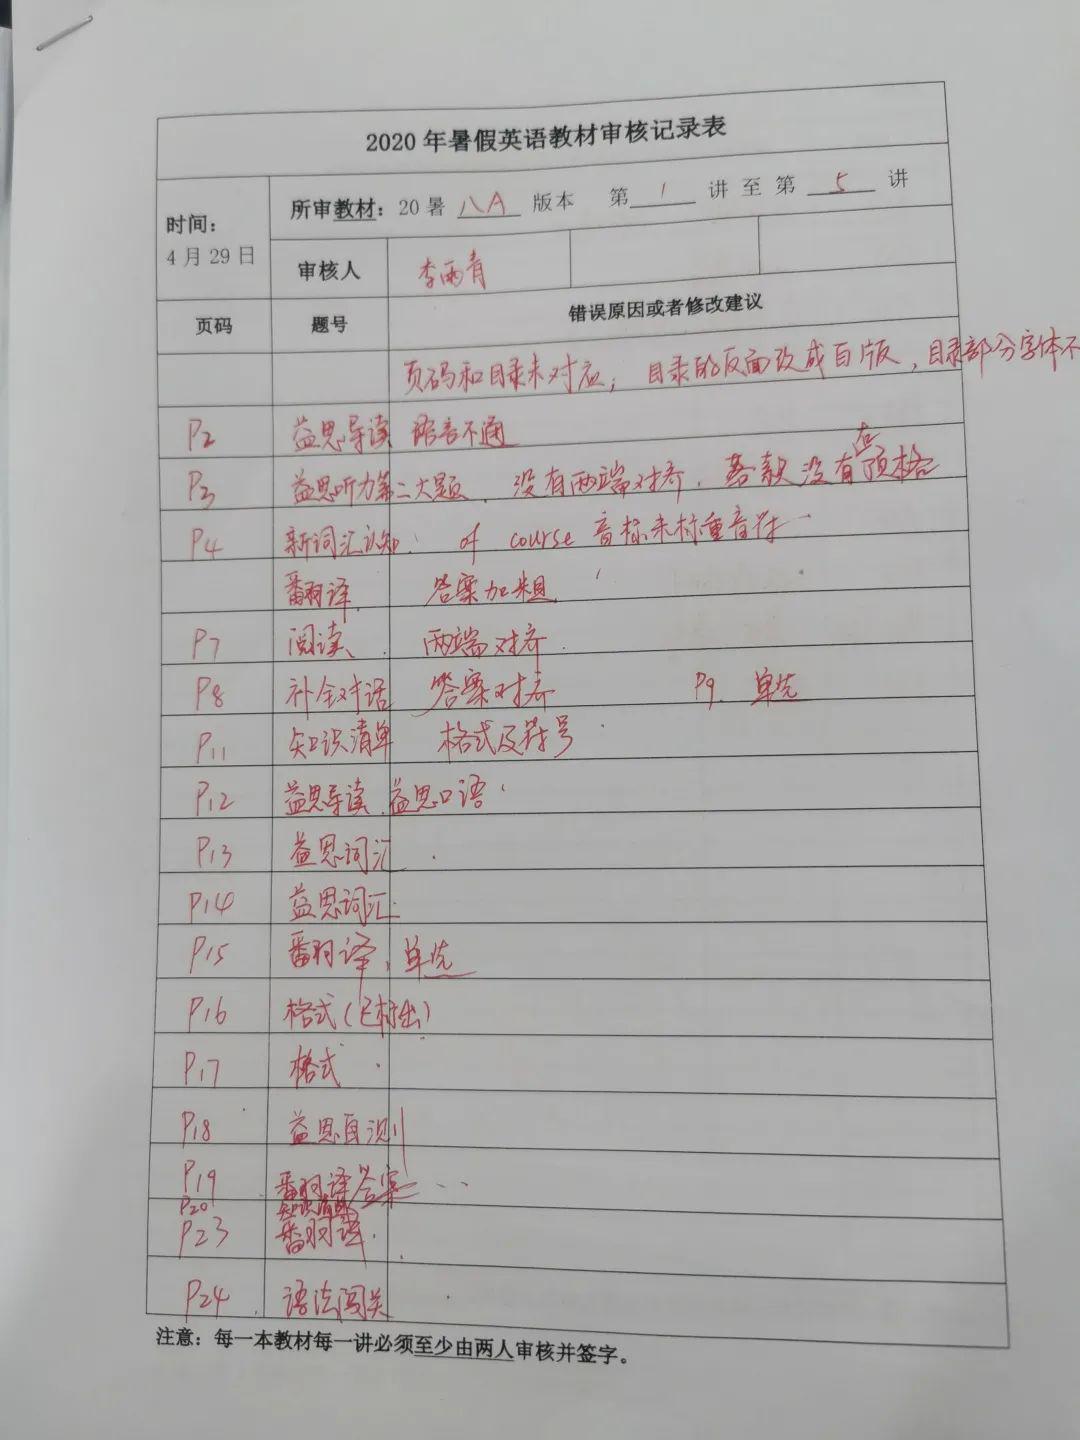 2020年暑假英语教材审核记录表
时间：
4月29日
所审教材：20暑 八A 版本 第 1 讲 至 第 5 讲
审核人 李雨青
页码 题号 错误原因或者修改建议
页码和目录未对应；目录的反面改成白版，目录部分字体不
P2 益思导读 语言不通
P3 益思听力第二大题，没有两端对齐，落款没有右顶格
P4 新词汇认知： of course 音标未标重音符
翻译 答案加粗
P7 阅读、 两端对齐
P8 补全对话 答案对齐 P9 单选
P11 知识清单 格式及符号
P12 益思导读 益思口语
P13 益思词汇
P14 益思词汇
P15 翻译，单选
P16 格式（已标出）
P17 格式
P18 益思自测
P19 翻译答案
P20 知识清单
P23 翻译
P24 语法闯关
注意：每一本教材每一讲必须至少由两人审核并签字。